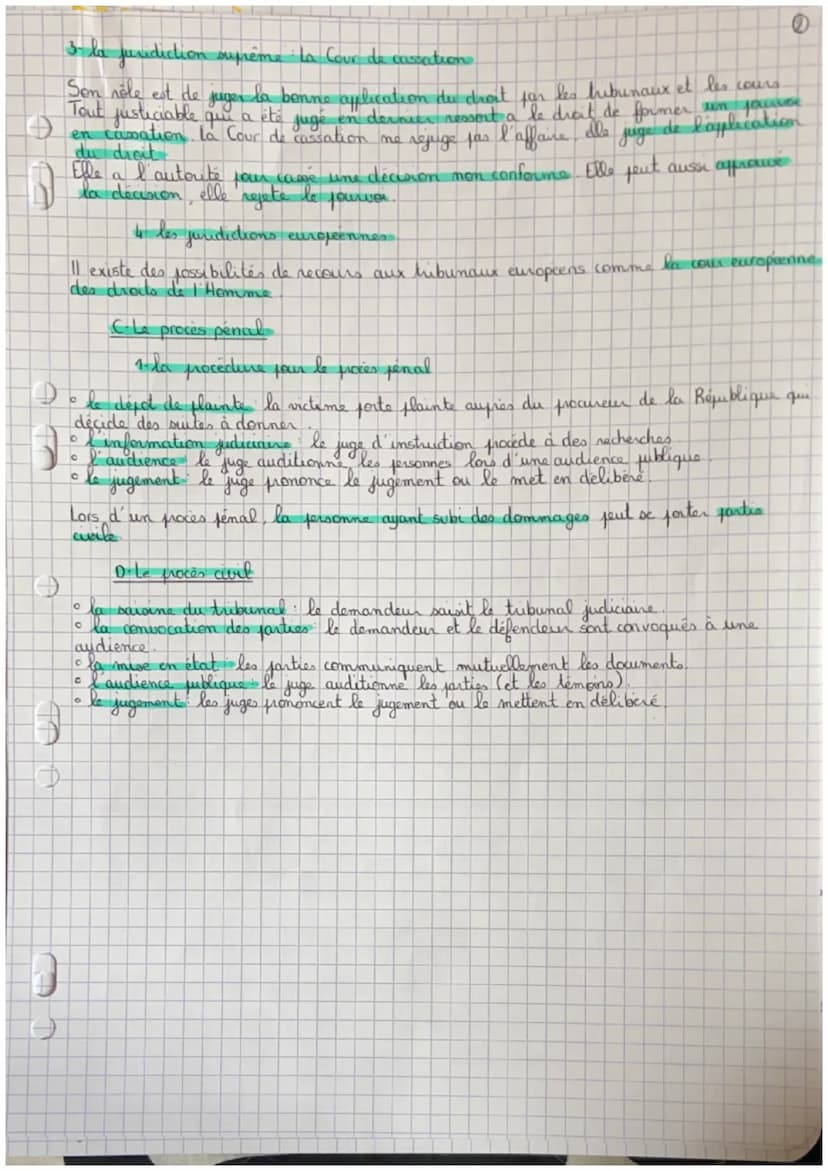 ②
3- la juridiction suprême : la Cour de cassation
Son rôle est de juger la bonne application du droit par les tribunaux et les cours.
Tout justiciable qui a été jugé en dernier ressort a le droit de former un pouvoir
en cassation. La Cour de cassation ne rejuge pas l'affaire, elle juge de l'application
du droit.
Elle a l'autorité pour cassé une décision non conforme. Elle peut aussi approuvé
la décision, elle rejete le pourvoi.
4- les juridictions européennes
Il existe des possibilités de recours aux tribunaux européens comme la cour européenne
des droits de l'Homme.
C- Le procès pénal
1- la procédure pour le procès pénal
• le dépot de plainte : la victime porte plainte auprès du procureur de la République qui
décide des suites à donner.
• l'information judiciaire : le juge d'instruction procède à des recherches.
• l'audience : le juge auditionne les personnes lors d'une audience publique.
• le jugement : le juge prononce le jugement ou le met en délibéré.
Lors d'un procès pénal, la personne ayant subi des dommages peut se porter partie
civile.
D- Le procès civil
• la saisine du tribunal : le demandeur saisit le tribunal judiciaire.
• la convocation des parties : le demandeur et le défendeur sont convoqués à une
audience.
• la mise en état : les parties communiquent mutuellement les documents.
• l'audience publique : le juge auditionne les parties (et les témoins).
• le jugement : les juges prononcent le jugement ou le mettent en délibéré.